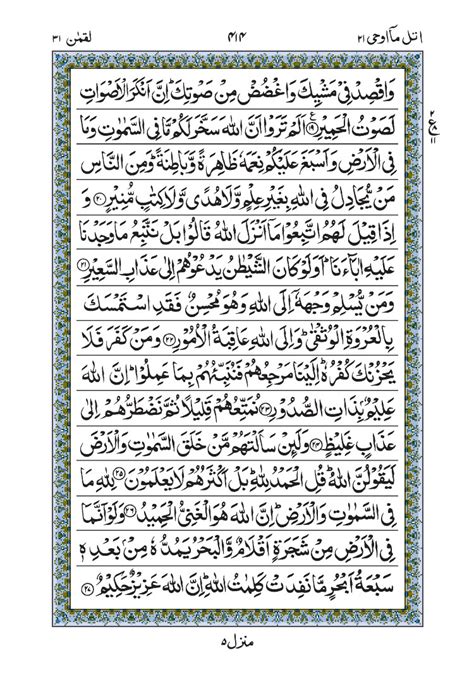 اتل مآاوحی ۲۱ ۴۱۴ لقمٰن ۳۱
وَاقْصِدْ فِیْ مَشْیِكَ وَاغْضُضْ مِنْ صَوْتِكَ ؕ اِنَّ اَنْكَرَ الْاَصْوَاتِ
لَصَوْتُ الْحَمِیْرِ ﴿۱۹﴾ اَلَمْ تَرَوْا اَنَّ اللّٰهَ سَخَّرَ لَكُمْ مَّا فِی السَّمٰوٰتِ وَمَا
۲ ع ۱۱
فِی الْاَرْضِ وَاَسْبَغَ عَلَیْكُمْ نِعَمَهٗ ظَاهِرَةً وَّبَاطِنَةً ؕ وَمِنَ النَّاسِ
مَنْ یُّجَادِلُ فِی اللّٰهِ بِغَیْرِ عِلْمٍ وَّلَا هُدًی وَّلَا كِتٰبٍ مُّنِیْرٍ ﴿۲۰﴾ وَ
اِذَا قِیْلَ لَهُمُ اتَّبِعُوْا مَاۤ اَنْزَلَ اللّٰهُ قَالُوْا بَلْ نَتَّبِعُ مَا وَجَدْنَا
عَلَیْهِ اٰبَآءَنَا ؕ اَوَلَوْ كَانَ الشَّیْطٰنُ یَدْعُوْهُمْ اِلٰی عَذَابِ السَّعِیْرِ ﴿۲۱﴾
وَمَنْ یُّسْلِمْ وَجْهَهٗۤ اِلَی اللّٰهِ وَهُوَ مُحْسِنٌ فَقَدِ اسْتَمْسَكَ
بِالْعُرْوَةِ الْوُثْقٰی ؕ وَاِلَی اللّٰهِ عَاقِبَةُ الْاُمُوْرِ ﴿۲۲﴾ وَمَنْ كَفَرَ فَلَا
یَحْزُنْكَ كُفْرُهٗ ؕ اِلَیْنَا مَرْجِعُهُمْ فَنُنَبِّئُهُمْ بِمَا عَمِلُوْا ؕ اِنَّ اللّٰهَ
عَلِیْمٌۢ بِذَاتِ الصُّدُوْرِ ﴿۲۳﴾ نُمَتِّعُهُمْ قَلِیْلًا ثُمَّ نَضْطَرُّهُمْ اِلٰی
عَذَابٍ غَلِیْظٍ ﴿۲۴﴾ وَلَئِنْ سَاَلْتَهُمْ مَّنْ خَلَقَ السَّمٰوٰتِ وَالْاَرْضَ
لَیَقُوْلُنَّ اللّٰهُ ؕ قُلِ الْحَمْدُ لِلّٰهِ ؕ بَلْ اَكْثَرُهُمْ لَا یَعْلَمُوْنَ ﴿۲۵﴾ لِلّٰهِ مَا
فِی السَّمٰوٰتِ وَالْاَرْضِ ؕ اِنَّ اللّٰهَ هُوَ الْغَنِیُّ الْحَمِیْدُ ﴿۲۶﴾ وَلَوْ اَنَّمَا
فِی الْاَرْضِ مِنْ شَجَرَةٍ اَقْلَامٌ وَّالْبَحْرُ یَمُدُّهٗ مِنْۢ بَعْدِهٖ
سَبْعَةُ اَبْحُرٍ مَّا نَفِدَتْ كَلِمٰتُ اللّٰهِ ؕ اِنَّ اللّٰهَ عَزِیْزٌ حَكِیْمٌ ﴿۲۷﴾
منزل ۵